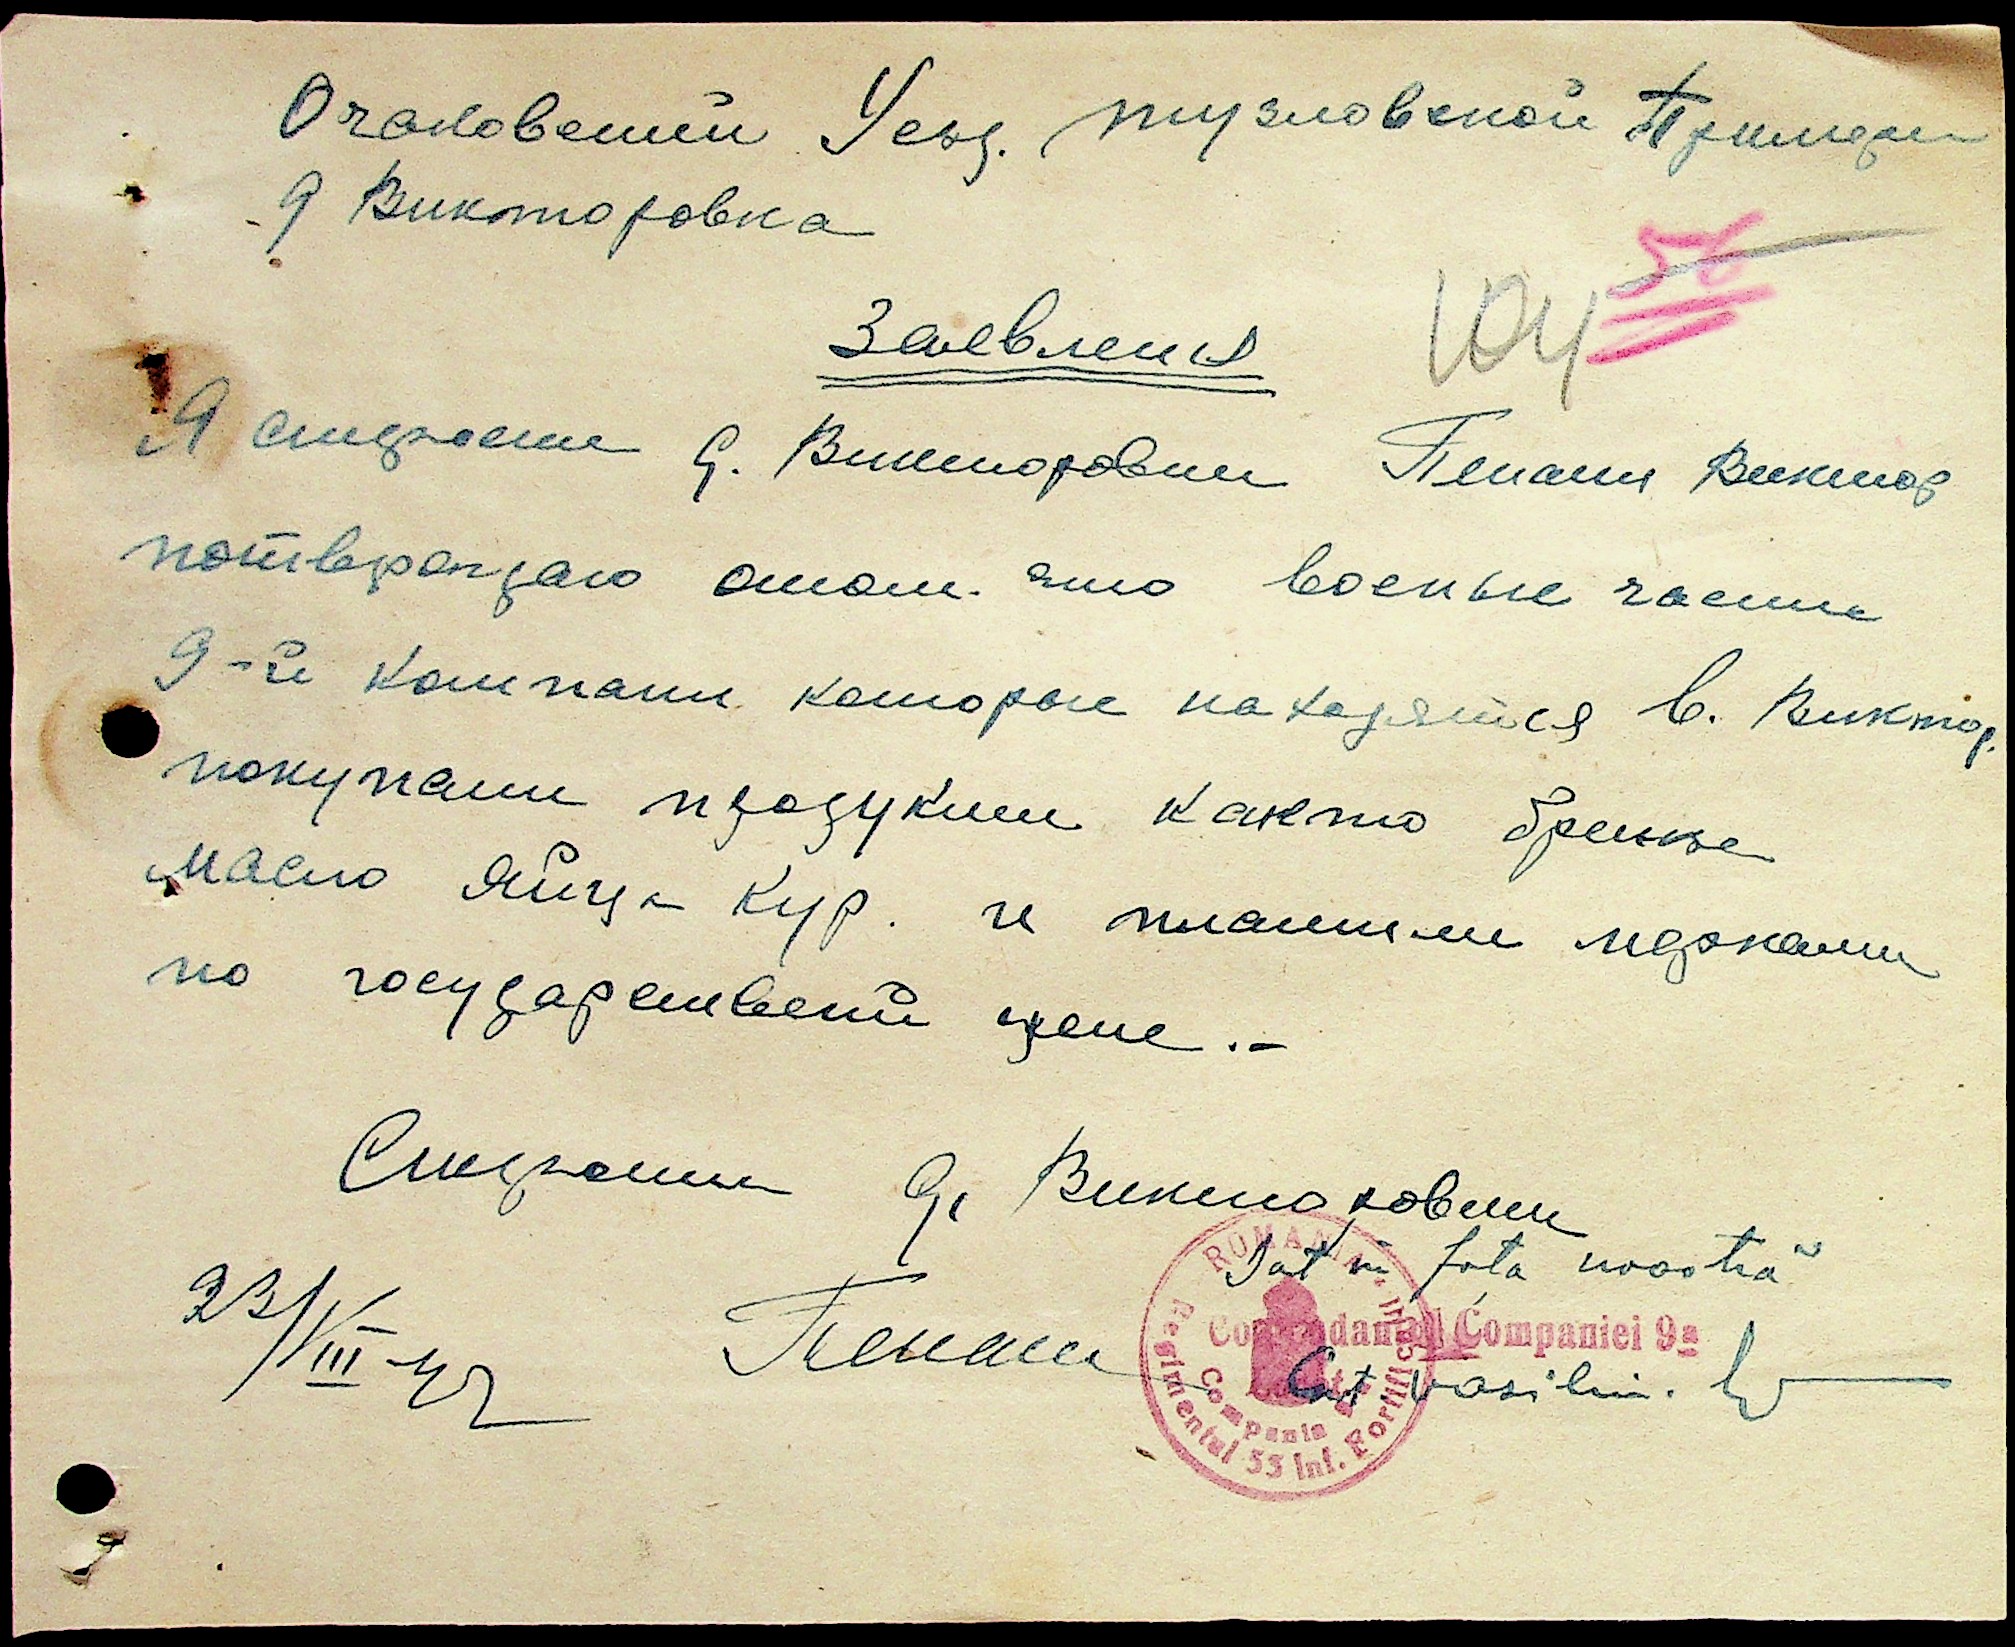 Очаковский Уезд. тузловской Примари
д Викторовка
56
104
Заевления
Я старости д. Викторовки Пепани Виктор
потверждаю отом. что военые части
9-й компани которые находятся в. Виктор.
покупали продукты както брынзе
масло яйца кур. и платили марками
по государственй цене.-
Старости д. Викторовки
Dat în fața noastră
23/VIII-42
Comandantul Companiei 9ª
Vasiliu.
ROMANIA
Regimentul 53 Inf. Fortificații
Compania 9